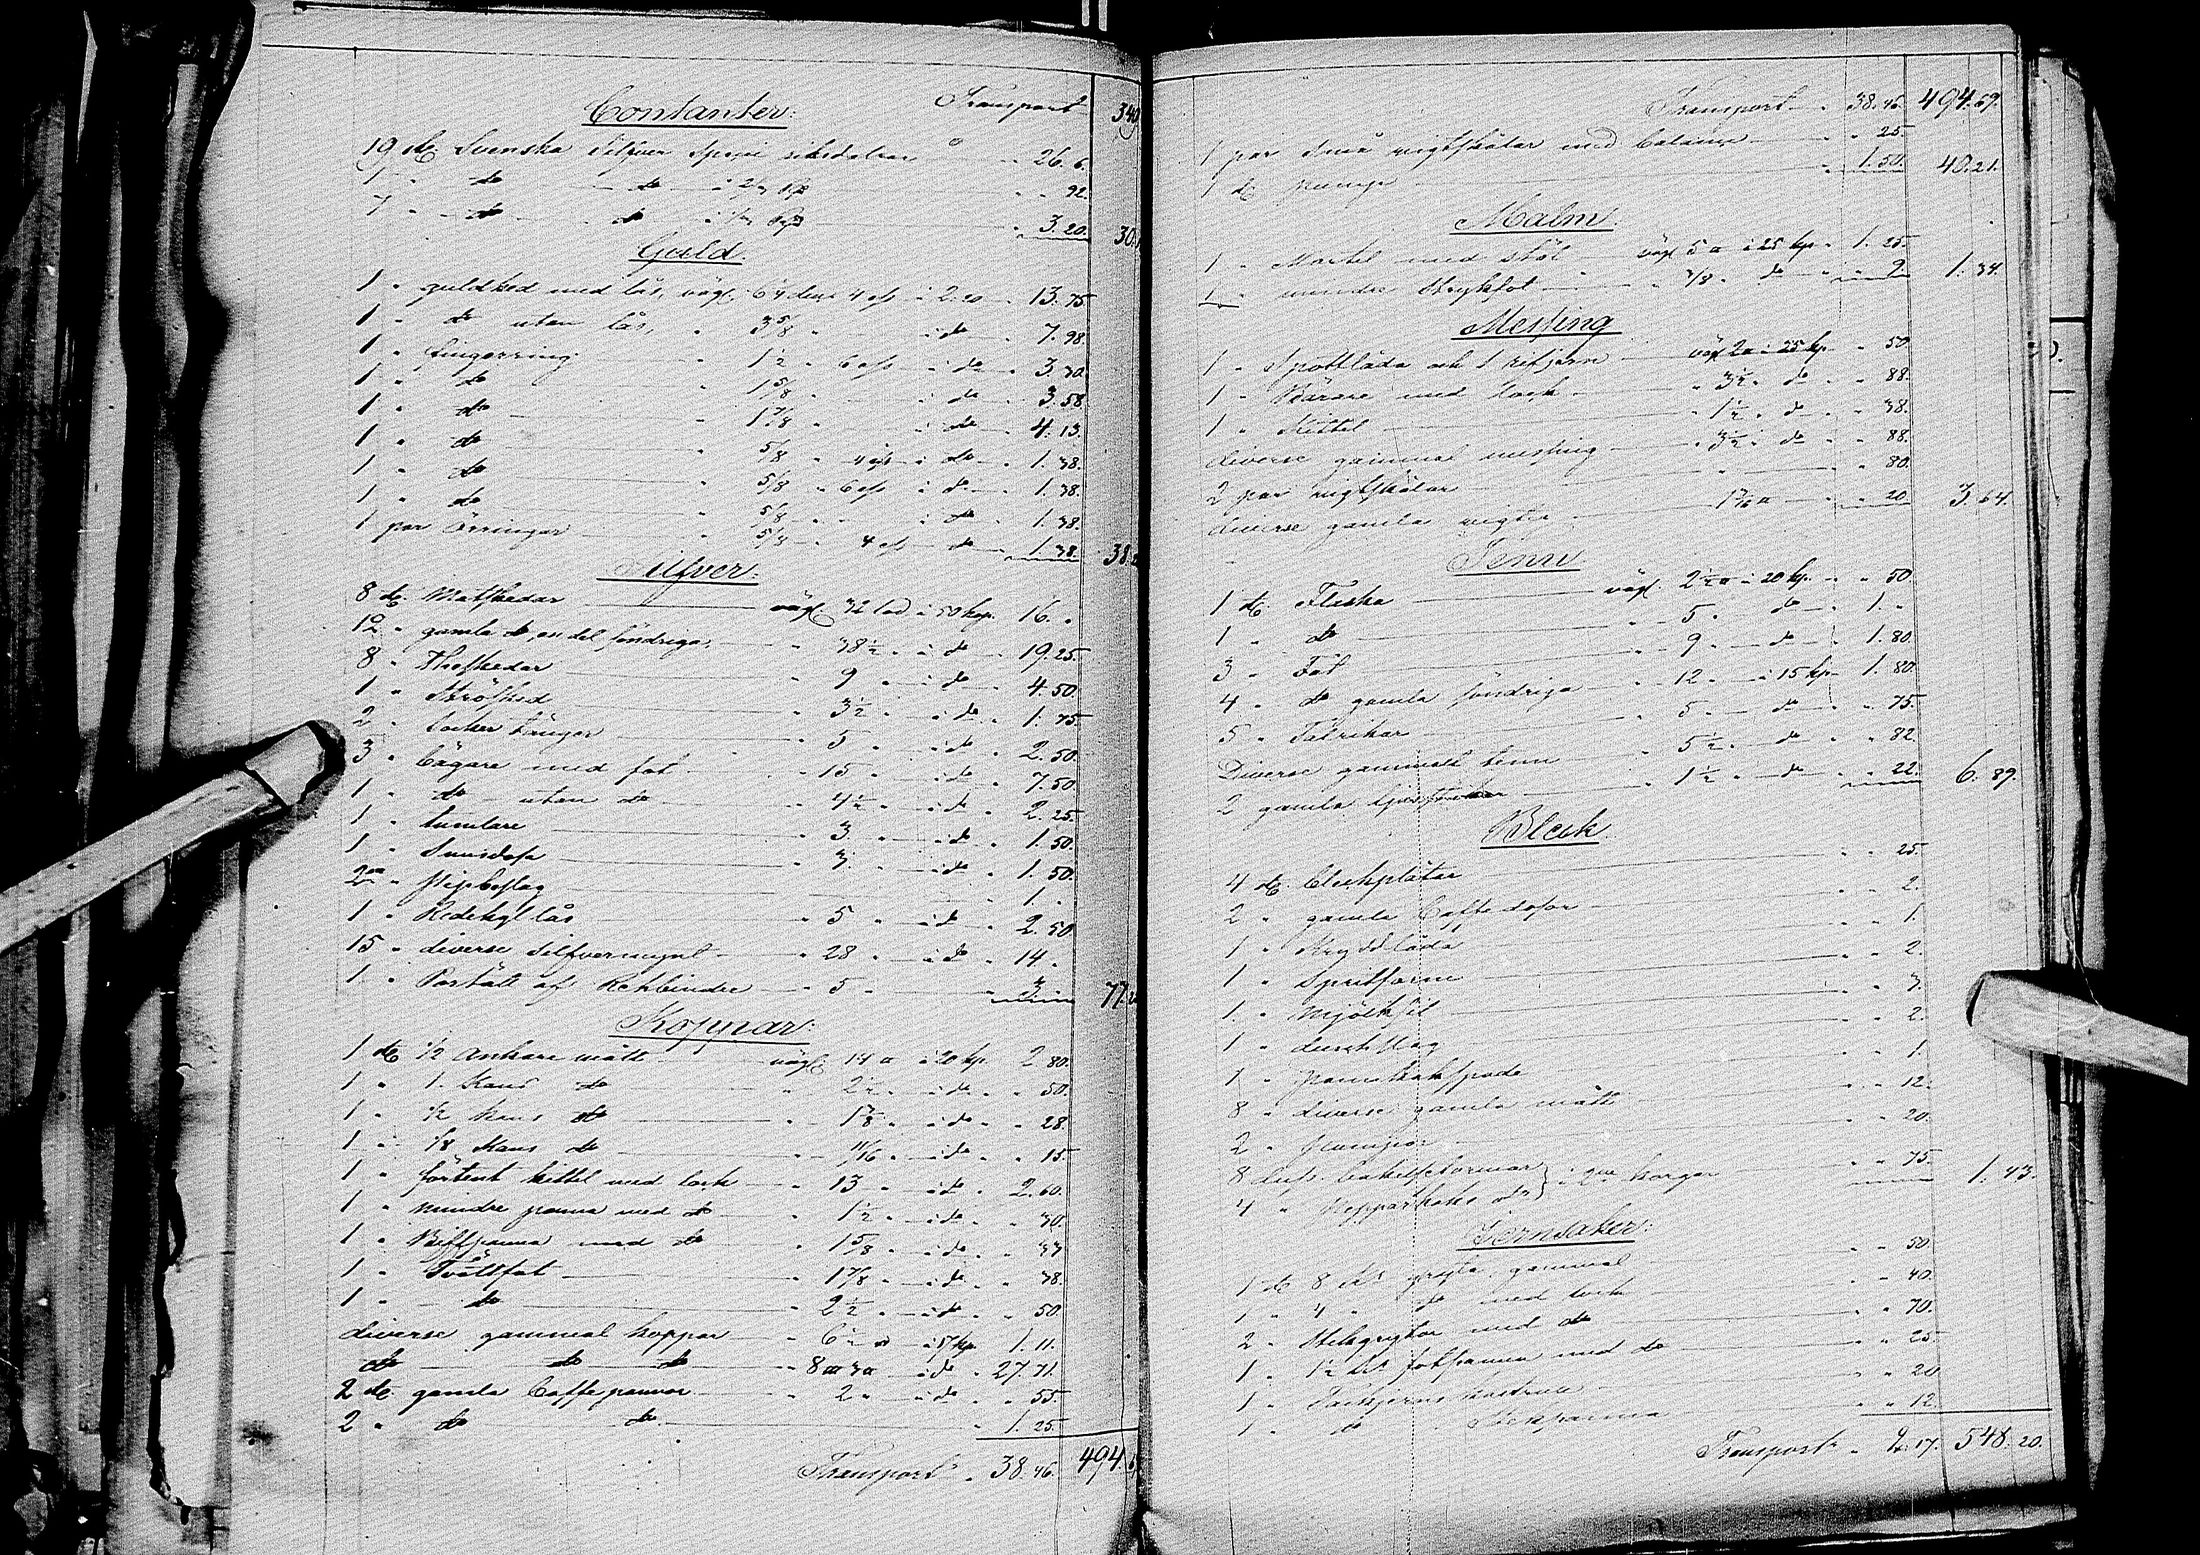 Transport 349
Contanter:
19 st. Svenska Silfver Specie riksdalrar à 26. 6.
1 " do do à 2/3 Rp " 92.
7 " do do à 1/3 Rp 3. 20. 30.
Guld.
1 " guldked med lås, vägl. 6 1/4 dens 4 ess à 2.20 13. 75
1 " do utan lås, " 3 5/8 " à do 7. 98.
1 " fingerring " 1 1/2 " 6 ess à do 3. 30.
1 " do " 1 5/8 " à do 3. 58.
1 " do " 1 7/8 " à do 4. 13.
1 " do 5/8 " 4 ess à do 1. 38.
1 " do 5/8 " 6 ess à do 1. 38.
1 " do " 5/8 " do 1. 38.
1 par örringar " 5/8 4 ess do 1. 38. 38.
Silfver:
8 st. Matskedar vägl. 32 lod à 50 kop. 16. "
12 " gamla do, en del söndriga, " 38 1/2 " à do 19. 25.
8 " Theskedar " 9 " à do 4. 50.
1 " Strösked " 3 1/2 " à do 1. 75
2 " Socker tänger " 5 " à do 2. 50.
3 " Bägare med fot " 15 " à do 7. 50
1 " do utan do " 4 1/2 " à do 2. 25.
1 " tumlare " 3 " à do 1. 50.
1 " Snusdosa " 3. " à do 1. 50.
2ne " Pipbeslag 1. "
1 " Redikyl lås " 5 " à do 2. 50
15 " diverse silfvermynt " 28 " à do 14 "
1 " Portätt af Rehbinder " 5 " 3. 77.
Koppar:
1 st. 1/2 Ankare mått vägl. 14 ℔ à 20 kp. 2. 80.
1 " 1. Kans do " 2 1/2 " à do " 50.
1 " 1/2 kans do " 1 3/8 " à do " 28.
1 " 1/8 Kans do " 11/16 " à do " 15.
1 " förtent kittel med lock " 13 " à do 2. 60.
1 " mindre panna med do " 1 1/2 " à do " 30.
1 " Biffpanna med do " 1 5/8 " à do " 33
1 " Tvättfat " 1 7/8 " à do " 38.
1 " do " 2 1/2 " à do " 50.
diverse gammal koppar " 6 1/2 ℔ à 17 kp. 1. 11.
do do do à do 27. 71.
2 st. gamla Caffepannor " 2 " à do " 55
2 " do do 1. 25.
Transport " 38. 46. 494.
Transport " 38. 46. 494. 69.
1 par små vigtskålar med balance " 25
1 st. pump " 1. 50. 40. 21.
Malm.
1 " Mortel med stöt vägl. 5 ℔ à 25 kp. 1. 25.
1 " mindre Grytfot " 3/8 " do " 9. 1. 34.
Messing
1 " Spottlåda och 1 rifjern vägl. 2 ℔ à 25 kp. " 50
1 " Bärare med lock " 3 1/2 " do " 88.
1 " Kittel " 1 1/2 " do " 38.
diverse gammal messing " 3 1/2 " do " 88.
2 par vigtskålar " 80.
diverse gamla vigter " 20 3. 64.
Tenn
1 st. Flaska vägl. 2 1/2 ℔ à 20 kp. " 50
1 " do " 5 " do 1. "
3 " Fat " 9 " do 1. 80.
4 " do gamla söndriga " 12 " à 15 kp. 1. 80.
5 " Talrikar " 5 " do " 75.
Diverse gammalt tenn " 5 1/2 " do " 82.
2 gamla ljusstakar " 1 1/2 " do " 22. 6. 89.
Bleck.
4 st. bleckplåtar " 25.
2 " gamla Caffe dosor " 2.
1 " Krydd låda " 1.
1 " Spritform " 2.
1 " Mjölksil " 3.
1 " durchslag " 2.
1 " pannkakspade " 1.
8 " diverse gamla mått " 12.
2 " pumpar " 20.
8 duss. bakelseformar i 2ne korgar " 75. 1. 43.
4 " Pepparkaks do
Jernsaker:
1 st. 8 Ks gryta gammal " 50.
1 " 4 " do med lock " 40.
2 " Stekgrytor med do " 70.
1 " 1 1/2 Ks fotpanna med do " 25
1 " Tackjerns kastrull " 20
1 " do Stekpanna " 12.
Transport " 2. 17. 548. 20.